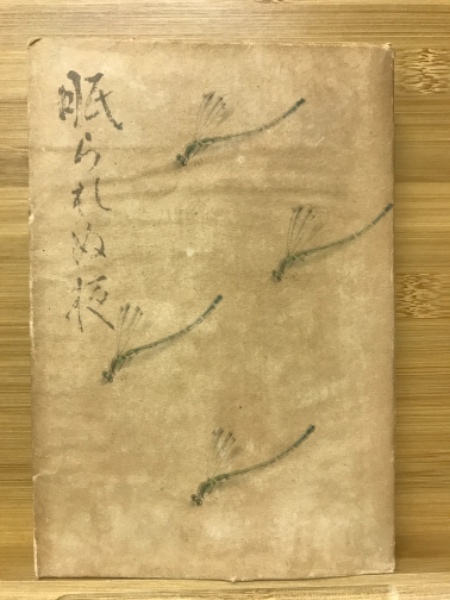 眠られぬ夜